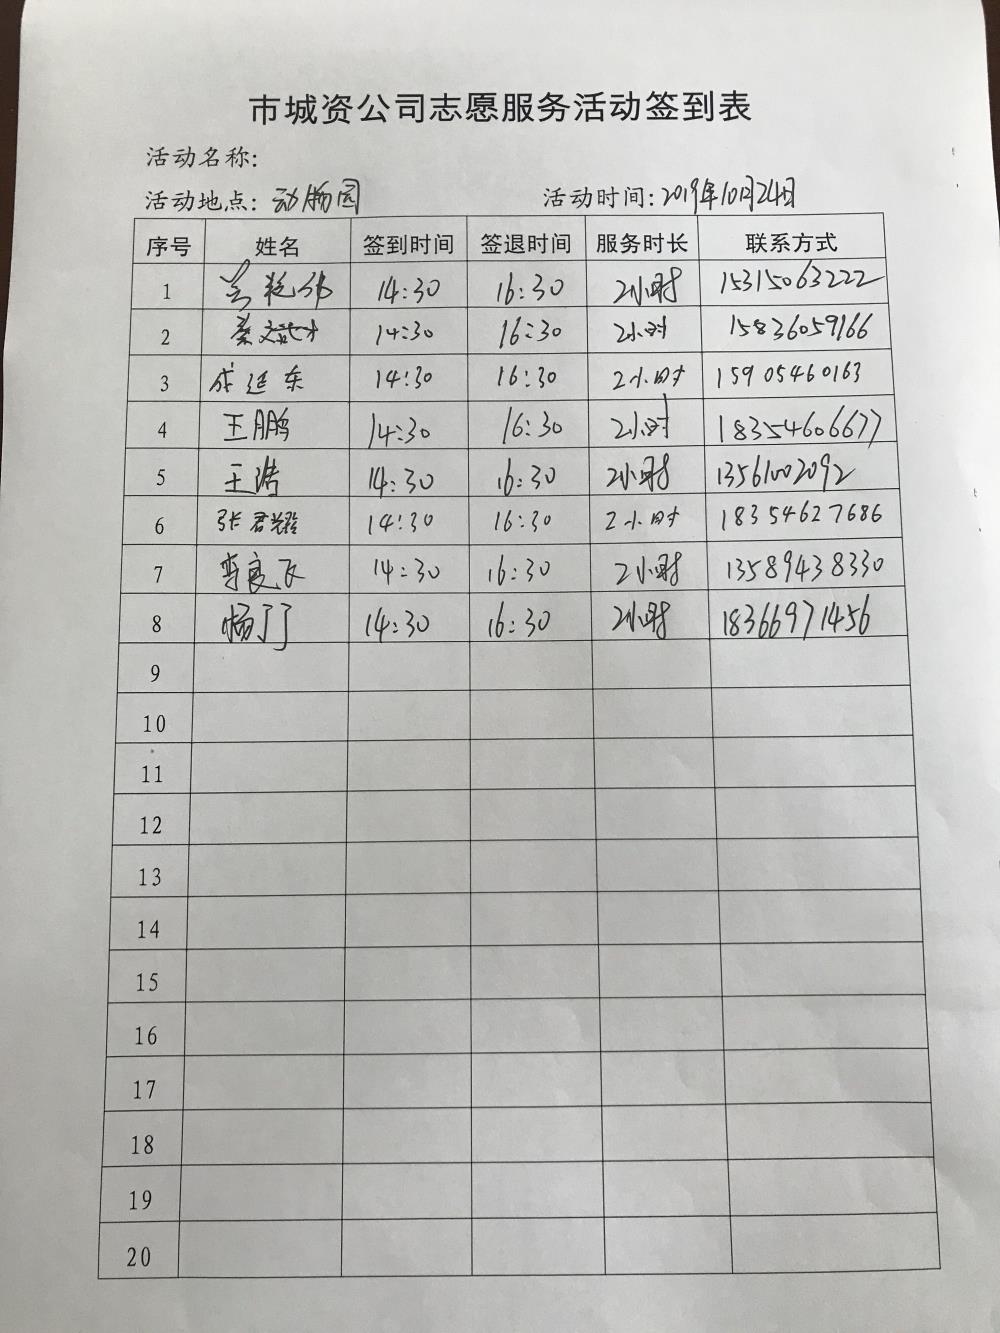 市城资公司志愿服务活动签到表
活动名称:
活动地点: 动物园 活动时间: 2019年10月24日
序号 姓名 签到时间 签退时间 服务时长 联系方式
1 14:30 16:30 2小时 15315063222
2 蔡文 14:30 16:30 2小时 15836059166
3 成延东 14:30 16:30 2小时 15905460163
4 王鹏 14:30 16:30 2小时 18354606677
5 王浩 14:30 16:30 2小时 13561002092
6 张君 14:30 16:30 2小时 18354627686
7 李良飞 14:30 16:30 2小时 13589438330
8 杨丁丁 14:30 16:30 2小时 18366971456
9
10
11
12
13
14
15
16
17
18
19
20